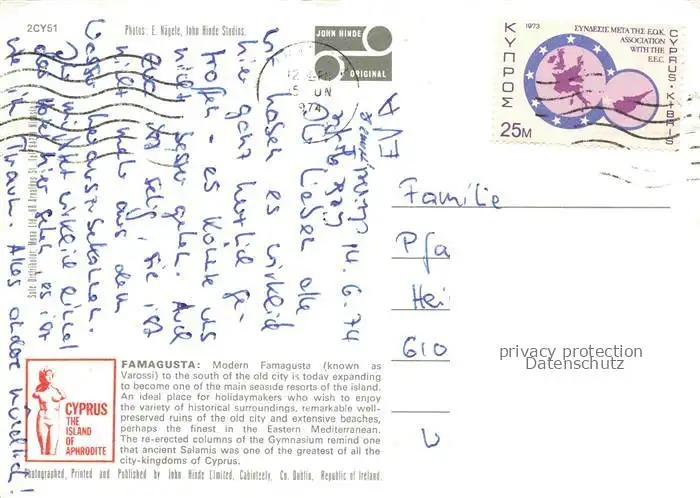 2CY51
Photos: E. Nägele, John Hinde Studios.
JOHN HINDE
ORIGINAL
1974
1973
ΣΥΝΔΕΣΙΣ ΜΕΤΑ ΤΗΣ Ε.Ο.Κ.
ASSOCIATION
WITH THE
E.E.C.
ΚΥΠΡΟΣ
CYPRUS·KIBRIS
25M
14.6.74
Ihr Lieben alle
wir haben es wirklich
hier ganz herrlich ge-
troffen - es könnte uns
nicht besser gehen. Auch
ist selig, sie ist
nicht mehr aus dem
Wasser herauszubekommen.
wirklich
hier gehen, es ist
wie ein Traum. Alles andere mündlich!
Familie
Pfa
Hei
610
privacy protection
Datenschutz
CYPRUS
THE
ISLAND
OF
APHRODITE
FAMAGUSTA: Modern Famagusta (known as
Varossi) to the south of the old city is today expanding
to become one of the main seaside resorts of the island.
An ideal place for holidaymakers who wish to enjoy
the variety of historical surroundings, remarkable well-
preserved ruins of the old city and extensive beaches,
perhaps the finest in the Eastern Mediterranean.
The re-erected columns of the Gymnasium remind one
that ancient Salamis was one of the greatest of all the
city-kingdoms of Cyprus.
Photographed, Printed and Published by John Hinde Limited, Cabinteely, Co. Dublin, Republic of Ireland.